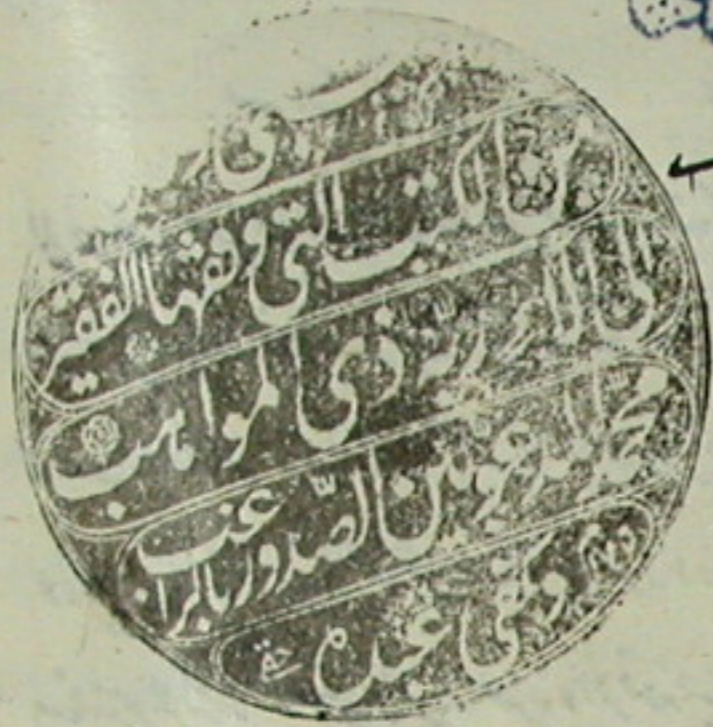 من الكتب التى وقفها الفقير
الى آلاء ربه ذى المواهب
محمد المدعو بين الصدور بالراغب
وكفى عبده